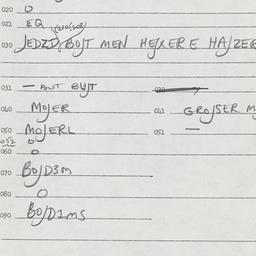 020 0
021 EQ
030 JEDZD, BOJT MEN HEJXERE HAJZER
031 — BUT BUJT
040 MOJER 041 GROJSER M
050 MOJERL 051 —
052 0
060 0
070 BOJD3M
080 0
090 BOJD2MS